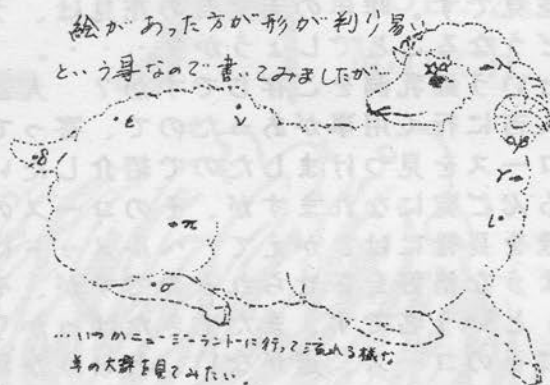 絵があった方が形が判り易い
という事なので書いてみましたが…
ε
ν
δ
α
β
γ
ι
π
σ
…いつかニュージーランドに行って流れる様な
羊の大群を見てみたい。